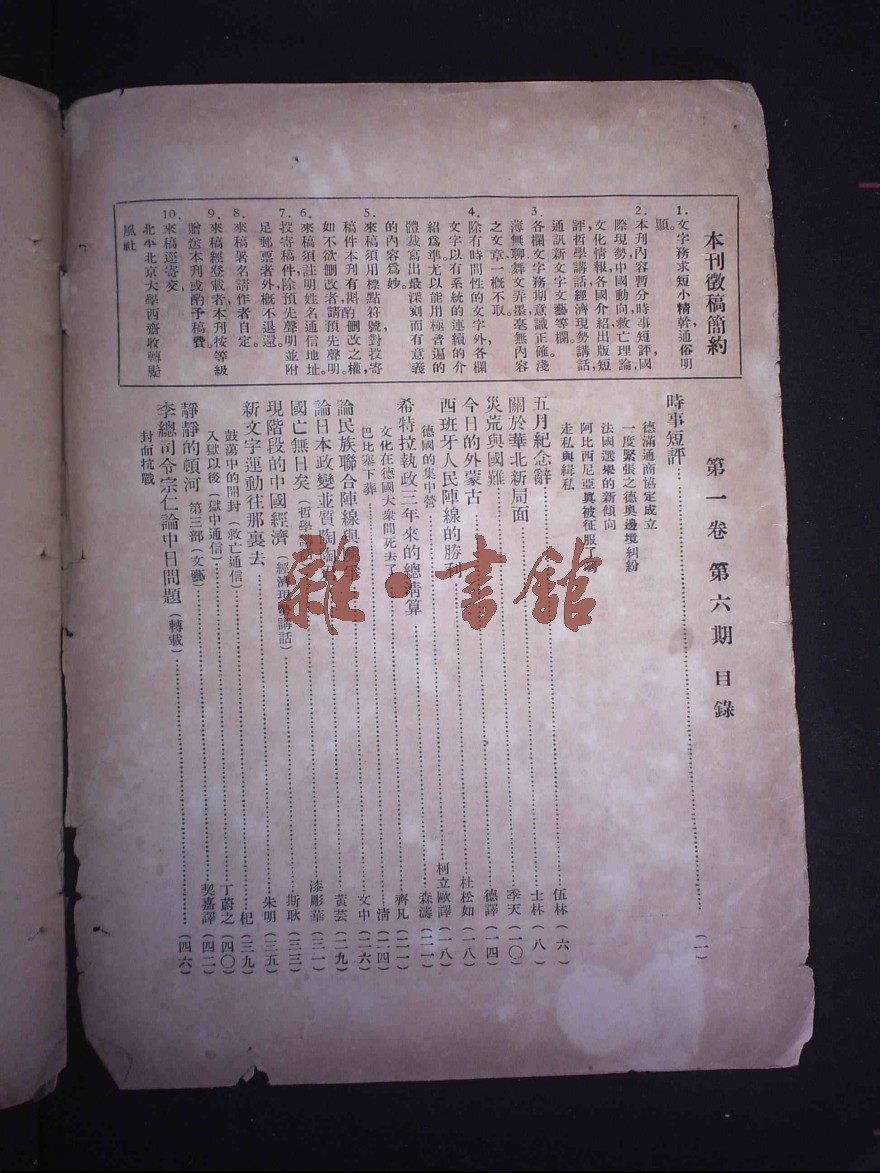 本刊徵稿簡約
1.文字務求短小精幹,通俗明
顯。
2.本刊內容暫分時事短評,國
際現勢中國動向救亡理論
文化情報,各國介紹出版短
評哲學講話,經濟現勢講話,
通訊新文字文藝等欄。
3.各欄文字務期意識正確,淺
薄無聊舞文弄墨,毫無內容
之文章一概不取。
4.除有時間性的文字外,各欄
文字以有系統的連續的介
紹爲準,尤以能用極普遍的
體裁寫出最深刻而有意義
的內容爲妙。
5.來稿須用標點符號,對投寄
稿件本刊有斟酌刪改之權,
如不欲刪改者請預先聲明。
6.來稿須註明姓名通信地址
7.投寄稿件除預先聲明並附
足郵票者外,概不退還。
8.來稿署名請作者自定。
9.來稿經登載者,本刊按等級
贈送本刊或酌予稿費
10.來稿逕寄交
北平北京大學西齋收轉
風社
第一卷 第六期 目錄
時事短評(一)
德滿通商協定成立
一度緊張之德奧邊境糾紛
法國選舉的新傾向
阿比西尼亞眞被征服了嗎
走私與緝私 伍林(六)
五月紀念辭 士林(八)
關於華北新局面 季天(一〇)
災荒與國難 德譯(一四)
今日的外蒙古 杜松如(一八)
西班牙人民陣線的勝利 柯立歐譯(一八)
德國的集中營 森濤(二一)
希特拉執政三年來的總淸算 齊凡(二一)
文化在德國大衆間死去了 淸(二四)
巴比塞下葬 文中(二六)
論民族聯合陣線與 黃芸(二九)
論日本政變並質陶 漆彫華(三一)
國亡無日矣(哲學講 斯耿(三三)
現階段的中國經濟(經濟現勢講話) 朱明(三五)
新文字運動往那裏去 杞(三九)
鼓蕩中的開封(救亡通信) 丁蔚之(四〇)
入獄以後(獄中通信) 契嘉譯(四二)
靜靜的頓河 第三部(文藝)(四六)
李總司令宗仁論中日問題(轉載)
封面抗戰
雜·書館